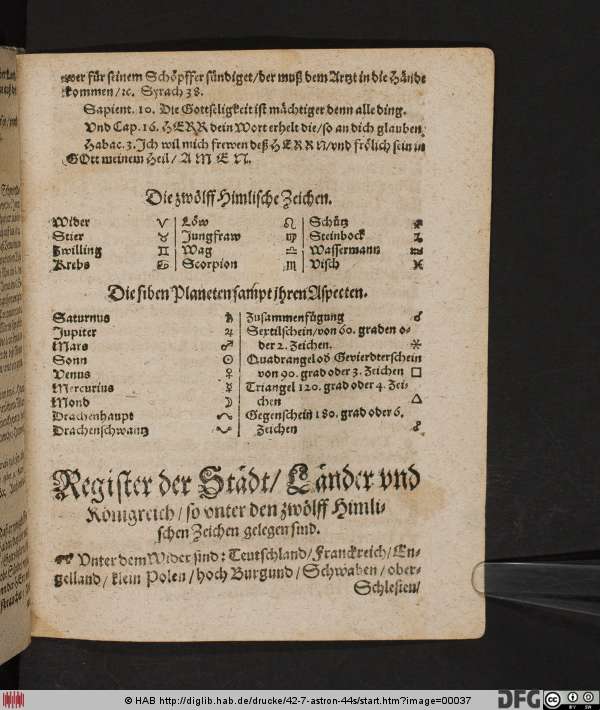 wer für seinem Schöpffer sündiget/der muß dem Artzt in die Hände
kommen/ꝛc. Syrach 38.
Sapient. 10. Die Gottseligkeit ist mächtiger denn alle ding.
Vnd Cap. 16. HERR dein Wort erhelt die/so an dich glauben.
Habac. 3. Ich wil mich frewen deß HERRN/vnd frölich sein in
GOtt meinem Heil/ AMEN.
Die zwölff Himlische Zeichen.
Wider ♈ Löw ♌ Schütz ♐
Stier ♉ Jungfraw ♍ Steinbock ♑
Zwilling ♊ Wag ♎ Wassermann ♒
Krebs ♋ Scorpion ♏ Visch ♓
Die siben Planeten sampt jhren Aspecten.
Saturnus ♄ Zusammenfügung ☌
Jupiter ♃ Sextilschein/von 60. graden o-
Mars ♂ der 2. Zeichen. ⚹
Sonn ☉ Quadrangel oď Gevierdterschein
Venus ♀ von 90. grad oder 3. Zeichen □
Mercurius ☿ Triangel 120. grad oder 4. Zei-
Mond ☽ chen △
Drachenhaupt ☊ Gegenschein 180. grad oder 6.
Drachenschwantz ☋ Zeichen ☍
Register der Städt/ Länder vnd
Königreich/ so vnter den zwölff Himli-
schen Zeichen gelegen sind.
Vnter dem Wider sind: Teutschland/Franckreich/En-
gelland/ klein Polen/ hoch Burgund/ Schwaben/ ober-
Schlesien/
© HAB http://diglib.hab.de/drucke/42-7-astron-44s/start.htm?image=00037
DFG